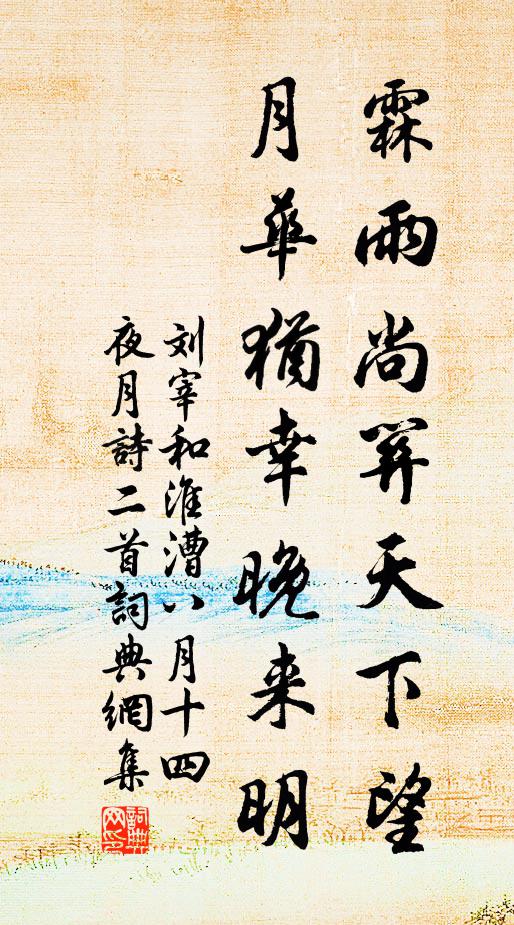 霖雨尚孤天下望
月華猶幸晚来明
刘宰和淮漕八月十四
夜月詩二首詞典網集
詞典网印